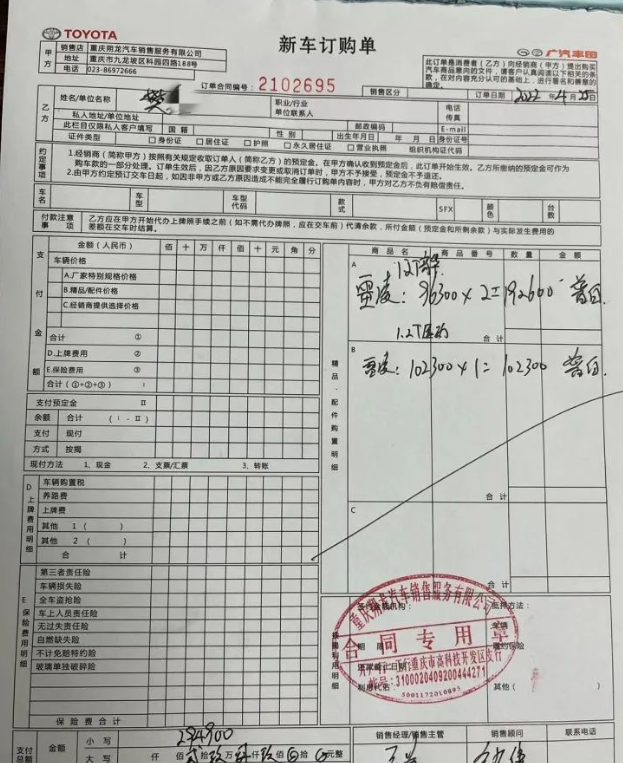 TOYOTA
新车订购单
广汽丰田
甲方
销售店 重庆翔龙汽车销售服务有限公司
地址 重庆市九龙坡区科园四路188号
电话 023-86972666
此订单是消费者(乙方)向经销商(甲方)提出购买
订单合同编号:2102695
销售区分
订单日期 2022年4月25日
乙方
姓名/单位名称 樊
职业/行业
单位联系人
电话
传真
私人地址/单位地址
邮政编码
E-mail
此栏目仅限私人客户填写 国籍 性别 出生年月日 年 月 日 身份证号
证件类型 □身份证 □居住证 □护照 □永久居住证 □营业执照 组织机构证代码
约定事项
1.经销商(简称甲方)按照有关规定收取订单人(简称乙方)的预定金。在甲方确认收到预定金后,此订单开始生效。乙方所缴纳的预定金可作为
购车款的一部分处理。订单生效后,因乙方原因要求变更或取消订单时,甲方不予接受,预定金不予退还。
2.由甲方约定预订交车日起,如因非甲方或乙方原因造成不能完全履行订购单内容时,甲方对乙方不负有赔偿责任。
车名 车型 车型代码 款式 SFX 颜色 台数
付款注意事项
乙方应在甲方开始代办上牌照手续之前(如不需代办牌照,应在交车前)代清余款,所付金额(预定金和所剩余款)与实际发生费用的
差额在交车时结算。
支付金额
金额(人民币) 佰 十 万 仟 佰 十 元 角 分
车辆价格
A.厂家特别规格价格
B.精品/配件价格
C.经销商提供选择价格
合计 ①
D.上牌费用 ②
E.保险费用 ③
合计(①+②+③) I
支付预定金 II
余额 合计 (I-II)
支付 现付
方式 按揭
现付方法 1、现金 2、支票/汇票 3、转账
D上牌费用明细
车辆购置税
养路费
上牌费
其他 1( )
其他 2( )
合计
E保险费用明细
第三者责任险
车辆损失险
全车盗抢险
车上人员责任险
无过失责任险
自燃缺失险
不计免赔特约险
玻璃单独破碎险
保险费合计
精品、配件购置明细
商品名 商品番号 数量 金额
A
雷凌:96300×2=192600 普白
合计
B
1.2T
雷凌:102300×1=102300 普白
合计
C
合计
重庆翔龙汽车销售服务有限公司
合同专用章
开户行:重庆市高科技开发区支行
账号:3100020409200444271
其他(
支付总额 金额
小写 294900
大写 仟 佰 贰拾玖万肆仟玖佰 拾 元整
销售经理/销售主管
销售顾问
联系电话